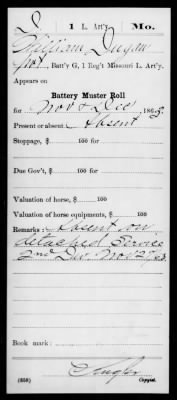 D | 1 L. Art'y. | Mo.
William Dugan
Pvt, Batt'y G, 1 Reg't Missouri L. Art'y.
Appears on
Battery Muster Roll
for Nov & Dec, 1863.
Present or absent Absent
Stoppage, $ 100 for
Due Gov't, $ 100 for
Valuation of horse, $ 100
Valuation of horse equipments, $ 100
Remarks: Absent on
detached Service
2nd Div Nov 27/63.
Book mark:
(858)
Copyist.